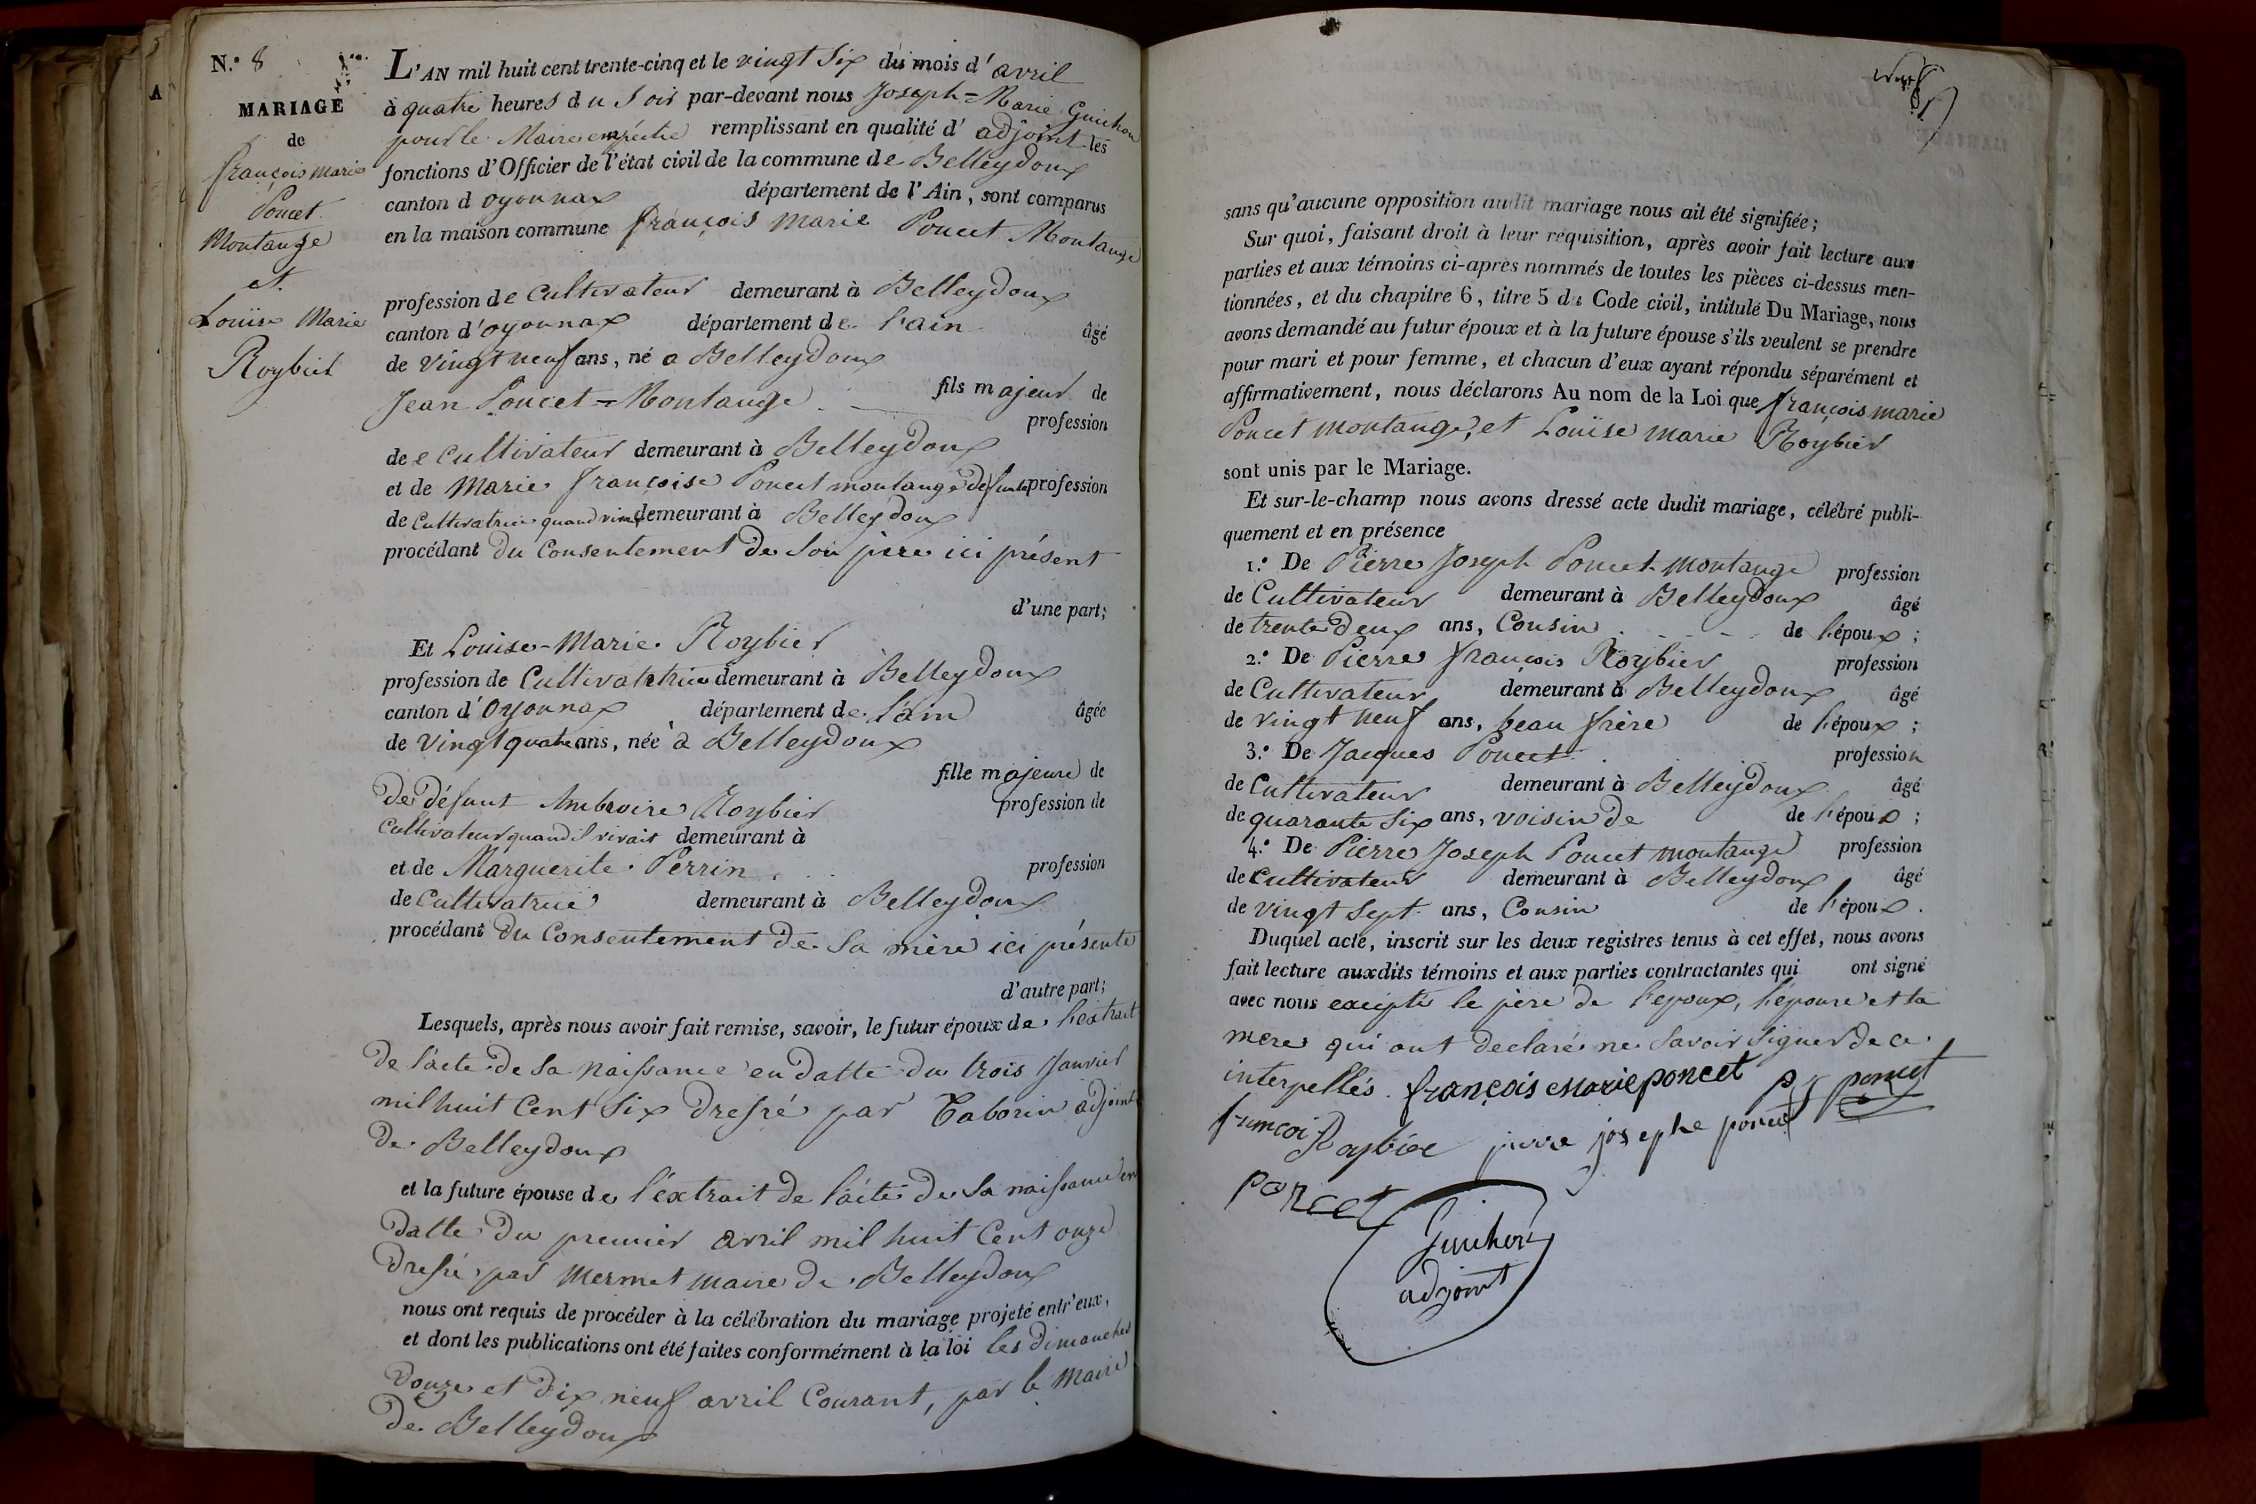 N.° 8
MARIAGE
de
françois marie
Poncet
Montange
et
Louise Marie
Roybier
L'AN mil huit cent trente-cinq et le vingt six du mois d'avril
à quatre heures du soir par-devant nous Joseph=Marie Guichon
pour le Maire empéché remplissant en qualité d'adjoint les
fonctions d'Officier de l'état civil de la commune de Belleydoux
canton d oyonnax département de l'Ain, sont comparus
en la maison commune françois marie Poncet Montange
profession de Cultivateur demeurant à Belleydoux
canton d'oyonnax département de l'ain âgé
de vingt neuf ans, né a Belleydoux
fils majeur de
Jean Poncet=Montange profession
de Cultivateur demeurant à Belleydoux
et de Marie françoise Poncet montange défunte profession
de Cultivatrice quand demeurant à Belleydoux
procédant du Consentement de son père ici présent
d'une part;
Et Louise-Marie Roybier
profession de Cultivatrice demeurant à Belleydoux
canton d'Oyonnax département de l'ain âgée
de vingt quatre ans, née à Belleydoux
fille majeure de
De défunt Ambroise Roybier profession de
Cultivateur quand il vivait demeurant à
et de Marguerite Perrin profession
de Cultivatrice demeurant à Belleydoux
procédant du Consentement de sa mère ici présente
d'autre part;
Lesquels, après nous avoir fait remise, savoir, le futur époux de l'extrait
de l'acte de sa naissance en datte du trois Janvier
mil huit Cent six dressé par Taborin adjoint
de Belleydoux
et la future épouse de l'extrait de l'acte de sa naissance en
datte du premier avril mil huit Cent onze
dressé par Mermet maire de Belleydoux
nous ont requis de procéder à la célébration du mariage projeté entr'eux,
et dont les publications ont été faites conformément à la loi les dimanches
douze et dix neuf avril Courant, par le Maire
de Belleydoux
sans qu'aucune opposition audit mariage nous ait été signifiée;
Sur quoi, faisant droit à leur réquisition, après avoir fait lecture aux
parties et aux témoins ci-après nommés de toutes les pièces ci-dessus men-
tionnées, et du chapitre 6, titre 5 du Code civil, intitulé Du Mariage, nous
avons demandé au futur époux et à la future épouse s'ils veulent se prendre
pour mari et pour femme, et chacun d'eux ayant répondu séparément et
affirmativement, nous déclarons Au nom de la Loi que françois marie
Poncet montange, et Louise marie Roybier
sont unis par le Mariage.
Et sur-le-champ nous avons dressé acte dudit mariage, célébré publi-
quement et en présence
1.° De Pierre Joseph Poncet montange profession
de Cultivateur demeurant à Belleydoux âgé
de trente deux ans, Cousin de l'époux;
2.° De Pierre françois Roybier profession
de Cultivateur demeurant à Belleydoux âgé
de vingt neuf ans, beau frère de l'époux;
3.° De Jacques Poncet profession
de Cultivateur demeurant à Belleydoux âgé
de quarante six ans, voisin de de l'époux;
4.° De Pierre Joseph Poncet montange profession
de Cultivateur demeurant à Belleydoux âgé
de vingt sept ans, Cousin de l'époux.
Duquel acte, inscrit sur les deux registres tenus à cet effet, nous avons
fait lecture auxdits témoins et aux parties contractantes qui ont signé
avec nous excepté le père de l'epoux, l'épouse et la
mere qui ont declaré ne savoir signer de ce
interpellés. françois Marie poncet p j poncet
francoi Roybier pierre josephe poncet
Poncet
Guichon
adjoint